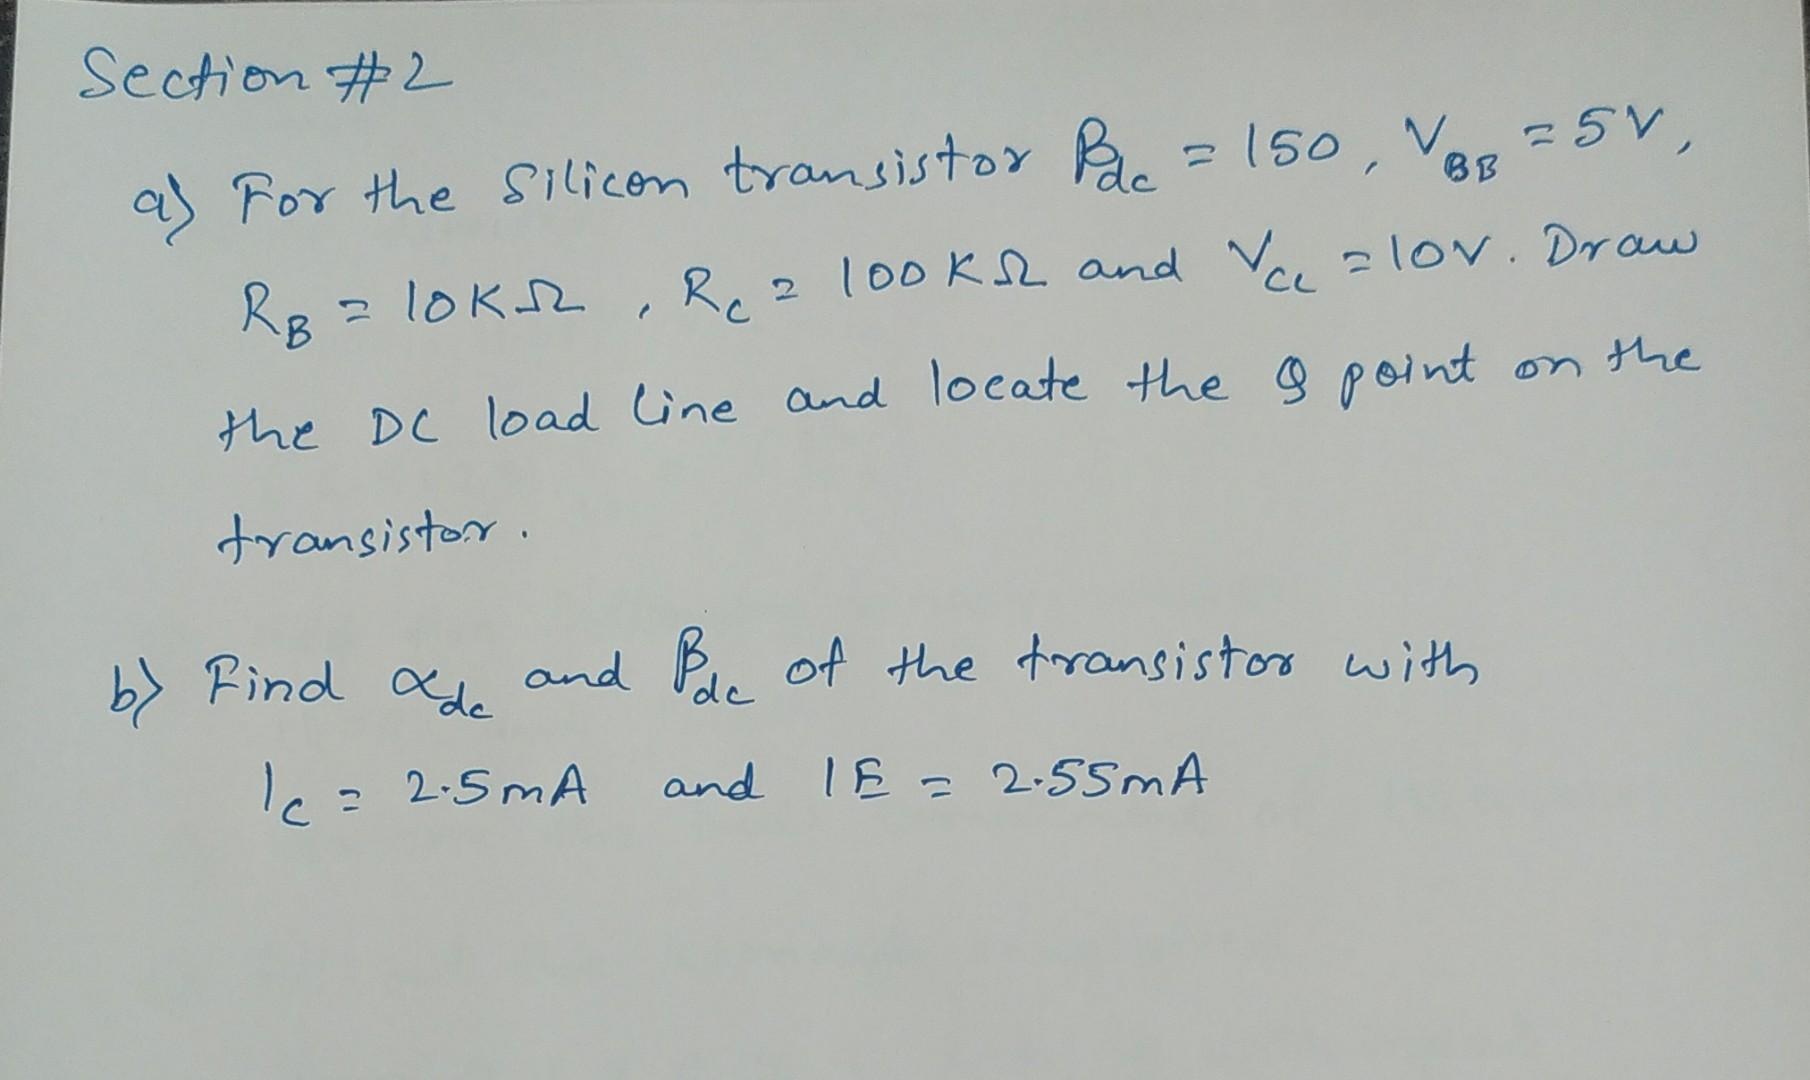 Section #2
a) For the Silicon transistor βdc = 150, VBB = 5V,
RB = 10KΩ, Rc = 100KΩ and Vcc = 10V. Draw
the DC load line and locate the Q point on the
transistor.
b) Find αdc and βdc of the transistor with
Ic = 2.5mA and IE = 2.55mA